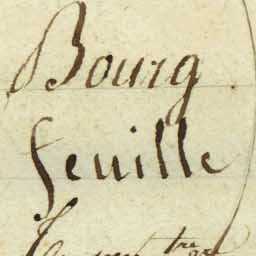 Bourg
feuille